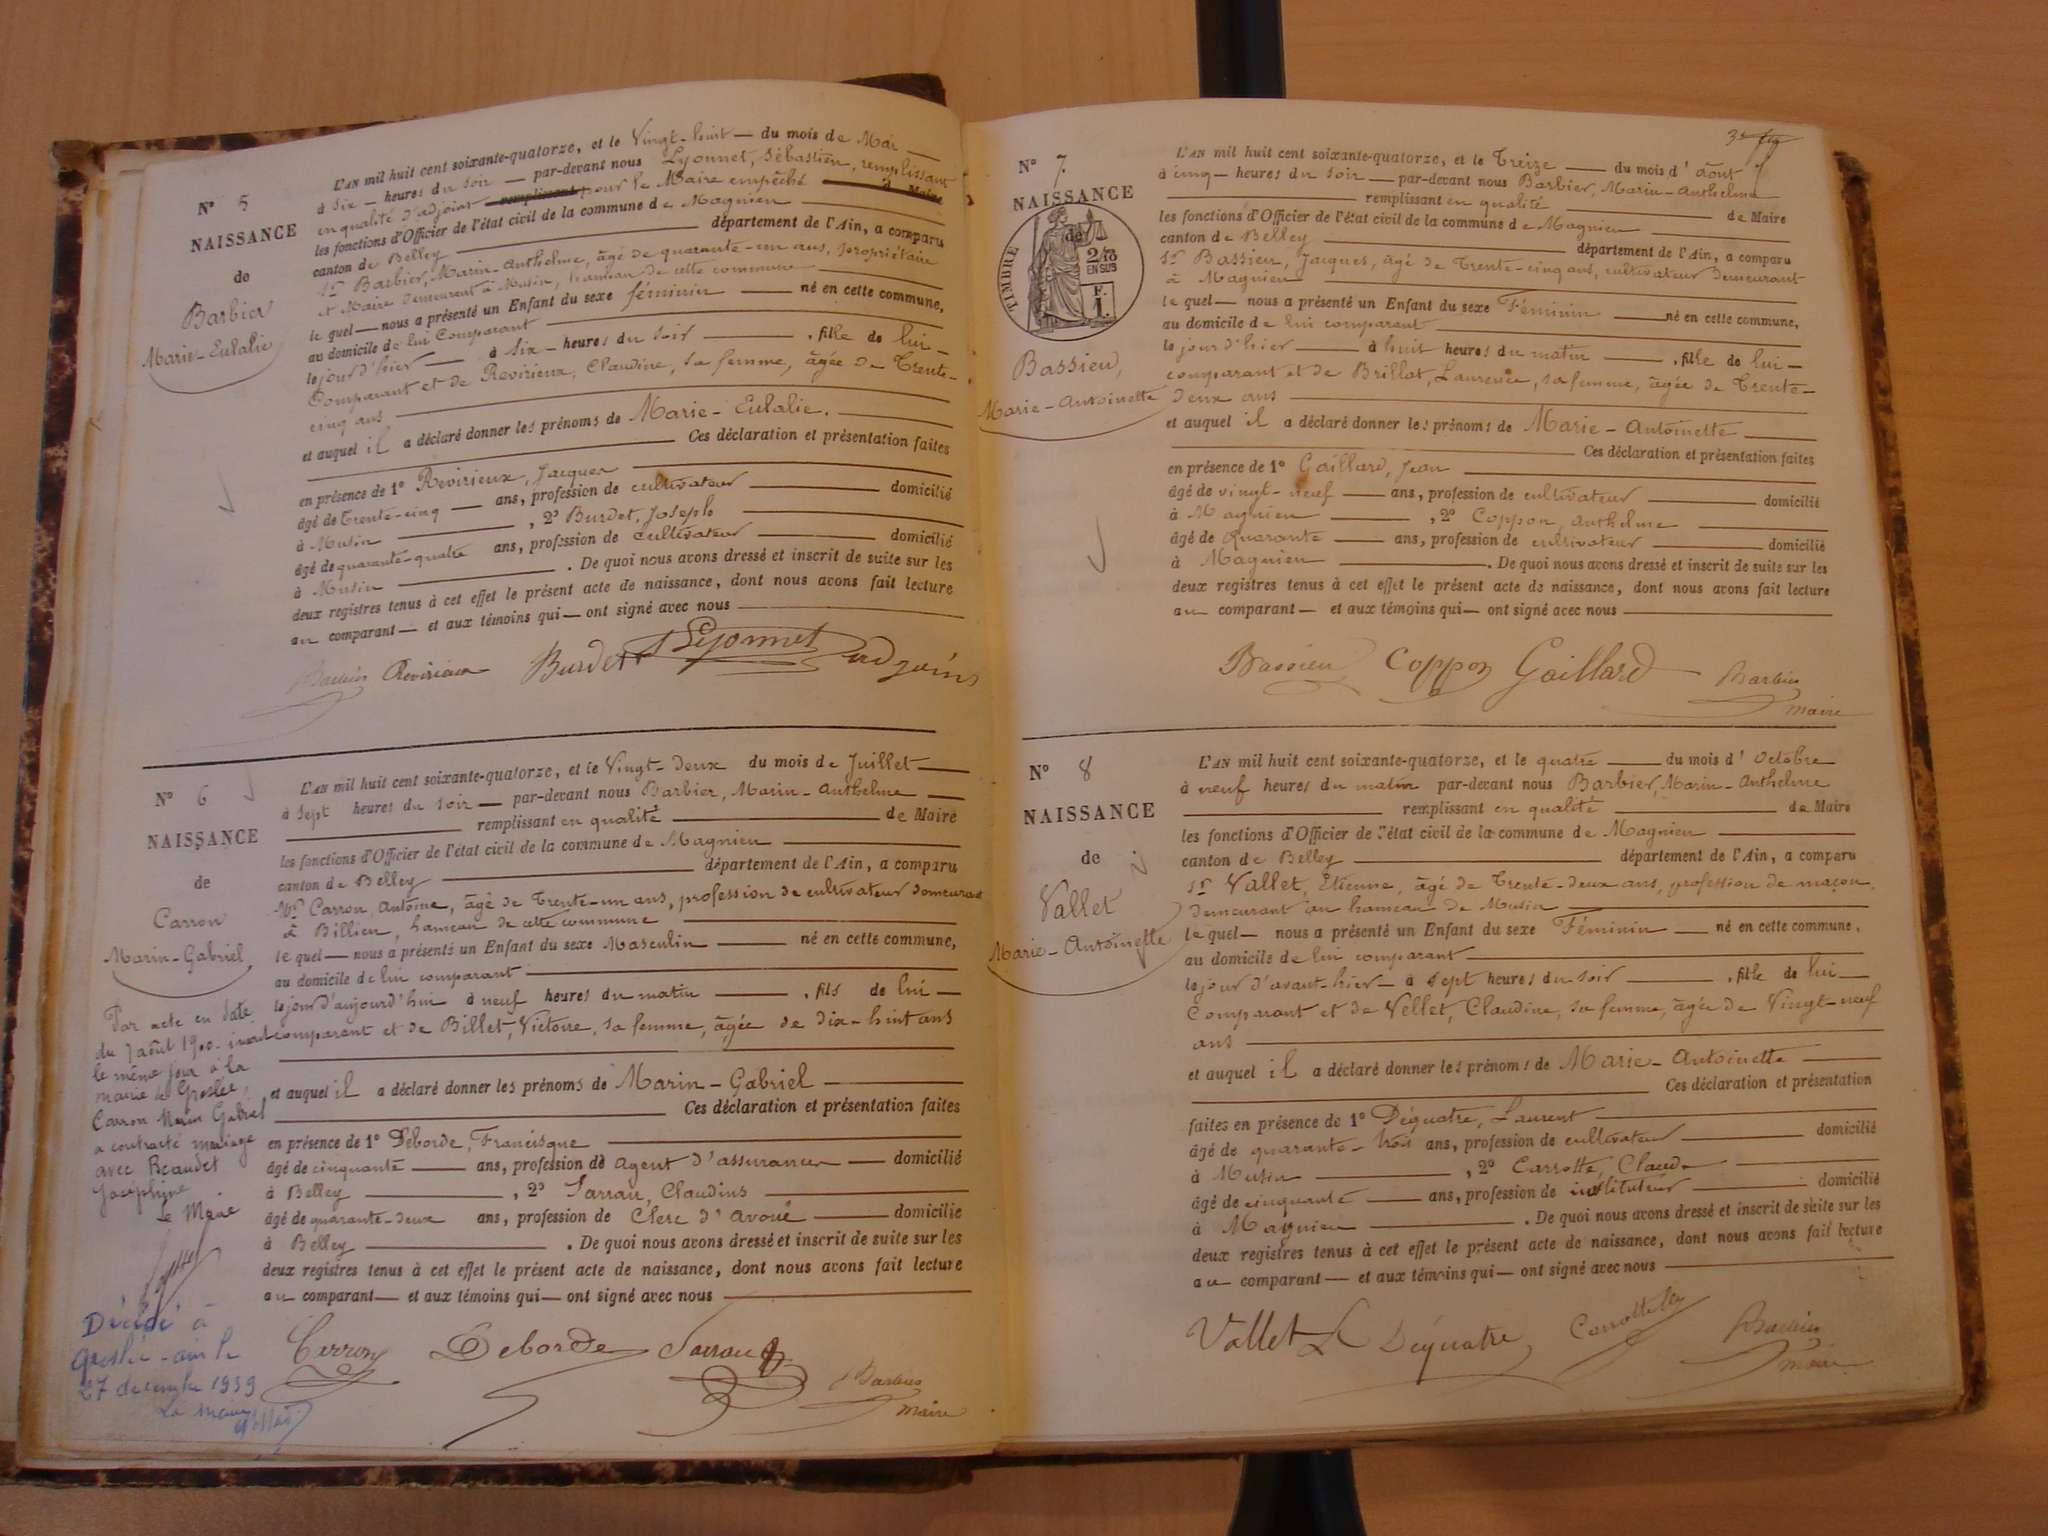 N° 5
NAISSANCE
de
Barbier
Marie-Eulalie
L'AN mil huit cent soixante-quatorze, et le Vingt-huit du mois de Mai
à six heures du soir par-devant nous Lyonnet, Sébastien, remplissant
en qualité d'adjoint remplissant pour le Maire empêché Maire
les fonctions d'Officier de l'état civil de la commune de Magnieu
canton de Belley département de l'Ain, a comparu
Sr Barbier, Marin-Anthelme, âgé de quarante-un ans, propriétaire
et Maire demeurant à Musin, hameau de cette commune
le quel nous a présenté un Enfant du sexe féminin né en cette commune,
au domicile de lui Comparant
le jour d'hier à six heures du soir , fille de lui
Comparant et de Revirieux, Claudine, sa femme, âgée de Trente-
cinq ans
et auquel il a déclaré donner les prénoms de Marie-Eulalie.
Ces déclaration et présentation faites
en présence de 1° Revirieux, Jacques
âgé de Trente-cinq ans, profession de cultivateur domicilié
à Musin , 2° Burdet, Joseph
âgé de quarante-quatre ans, profession de cultivateur domicilié
à Musin . De quoi nous avons dressé et inscrit de suite sur les
deux registres tenus à cet effet le présent acte de naissance, dont nous avons fait lecture
au comparant et aux témoins qui ont signé avec nous
Barbier Revirieux Burdet Lyonnet adjoint
N° 6
NAISSANCE
de
Carron
Marin-Gabriel
Par acte en date
du 7 août 1900 inscrit
le même jour à la
mairie de Groslée,
Carron Marin Gabriel
a contracté mariage
avec Reaudet
Joséphine
Le Maire
Décédé à
Groslée - ain le
27 decembre 1939
Le Maire
L'AN mil huit cent soixante-quatorze, et le Vingt-deux du mois de Juillet
à Sept heures du soir par-devant nous Barbier, Marin-Anthelme
remplissant en qualité de Maire
les fonctions d'Officier de l'état civil de la commune de Magnieu
canton de Belley département de l'Ain, a comparu
Mr Carron, Antoine, âgé de Trente-un ans, profession de cultivateur demeurant
à Billieu, hameau de cette commune
le quel nous a présenté un Enfant du sexe Masculin né en cette commune,
au domicile de lui comparant
le jour d'aujourd'hui à neuf heures du matin , fils de lui
comparant et de Billet, Victoire, sa femme, âgée de dix-huit ans
et auquel il a déclaré donner les prénoms de Marin-Gabriel
Ces déclaration et présentation faites
en présence de 1° Deborde, Francisque
âgé de cinquante ans, profession de agent d'assurances domicilié
à Belley , 2° Sarrau, Claudius
âgé de quarante-deux ans, profession de Clerc d'avoué domicilié
à Belley . De quoi nous avons dressé et inscrit de suite sur les
deux registres tenus à cet effet le présent acte de naissance, dont nous avons fait lecture
au comparant et aux témoins qui ont signé avec nous
Carron Deborde Sarrau Barbier
maire
3e
N° 7
NAISSANCE
de
TIMBRE
2/10
EN SUS
F.
1.
Bassieu,
Marie-Antoinette
L'AN mil huit cent soixante-quatorze, et le Treize du mois d'août
à cinq heures du soir par-devant nous Barbier, Marin-Anthelme
remplissant en qualité de Maire
les fonctions d'Officier de l'état civil de la commune de Magnieu
canton de Belley département de l'Ain, a comparu
Sr Bassieu, Jacques, âgé de Trente-cinq ans, cultivateur demeurant
à Magnieu
le quel nous a présenté un Enfant du sexe Féminin né en cette commune,
au domicile de lui comparant
le jour d'hier à huit heures du matin , fille de lui
comparant et de Brillat, Laurence, sa femme, âgée de Trente-
deux ans
et auquel il a déclaré donner les prénoms de Marie-Antoinette
Ces déclaration et présentation faites
en présence de 1° Gaillard, Jean
âgé de vingt-neuf ans, profession de cultivateur domicilié
à Magnieu , 2° Coppon, Anthelme
âgé de Quarante ans, profession de cultivateur domicilié
à Magnieu . De quoi nous avons dressé et inscrit de suite sur les
deux registres tenus à cet effet le présent acte de naissance, dont nous avons fait lecture
au comparant et aux témoins qui ont signé avec nous
Bassieu Coppon Gaillard Barbier
maire
N° 8
NAISSANCE
de
Vallet
Marie-Antoinette
L'AN mil huit cent soixante-quatorze, et le quatre du mois d'Octobre
à neuf heures du matin par-devant nous Barbier, Marin-Anthelme
remplissant en qualité de Maire
les fonctions d'Officier de l'état civil de la commune de Magnieu
canton de Belley département de l'Ain, a comparu
Sr Vallet, Etienne, âgé de Trente-deux ans, profession de maçon,
demeurant au hameau de Musin
le quel nous a présenté un Enfant du sexe Féminin né en cette commune,
au domicile de lui comparant
le jour d'avant-hier à sept heures du soir , fille de lui
Comparant et de Vellet, Claudine, sa femme, âgée de Vingt-neuf
ans
et auquel il a déclaré donner les prénoms de Marie-Antoinette
Ces déclaration et présentation
faites en présence de 1° Déquatre, Laurent
âgé de quarante-trois ans, profession de cultivateur domicilié
à Musin , 2° Carrotte, Claude
âgé de cinquante ans, profession de instituteur domicilié
à Magnieu . De quoi nous avons dressé et inscrit de suite sur les
deux registres tenus à cet effet le présent acte de naissance, dont nous avons fait lecture
au comparant et aux témoins qui ont signé avec nous
Vallet L Déquatre Carrotte Barbier
maire